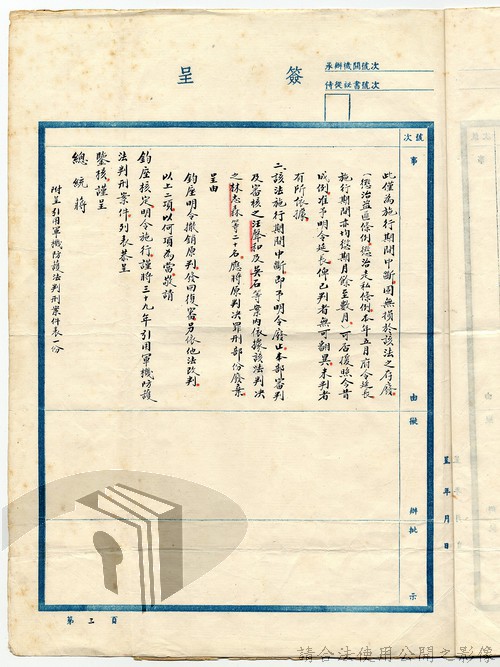 簽呈
承辦機關號次
侍從祕書號次
號次
事
由
擬
辦
批
示
此僅為施行期間中斷固無損於該法之存廢
（懲治盜匪條例懲治走私條例本年五月府令延長
施行期間亦均從期月餘至數月）可否復照今昔
成例准予明令延長俾已判者無可翻異未判者
有所依據
二、該法施行期間中斷即予明令廢止本部審判
及審核之汪聲和及吳石等案內依據該法判決
之林志森等二十名應將原判決罪刑部份廢棄
呈由
鈞座明令撤銷原判發回復審另依他法改判
以上二項以何項為當敬請
鈞座核定明令施行謹將三十九年引用軍機防護
法判刑案件列表恭呈
鑒核謹呈
總統蔣
附呈引用軍機防護法判刑案件表一份
呈 年 月 日
第 頁
請合法使用公開之影像